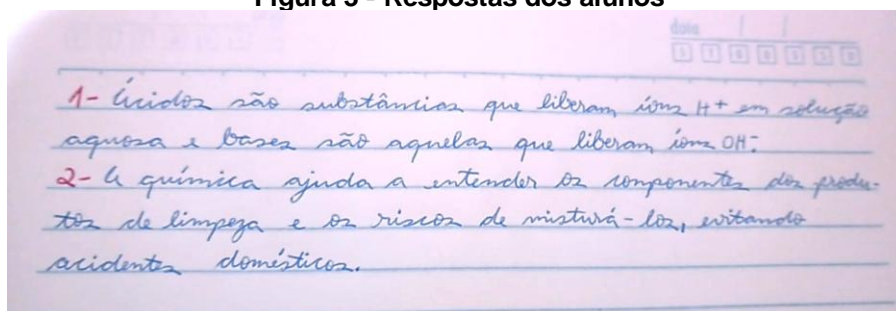 Figura 5 - Respostas dos alunos
data
1- Ácidos são substâncias que liberam íons H+ em solução
aquosa e bases são aquelas que liberam íons OH-.
2- A química ajuda a entender os componentes dos produ-
tos de limpeza e os riscos de misturá-los, evitando
acidentes domésticos.